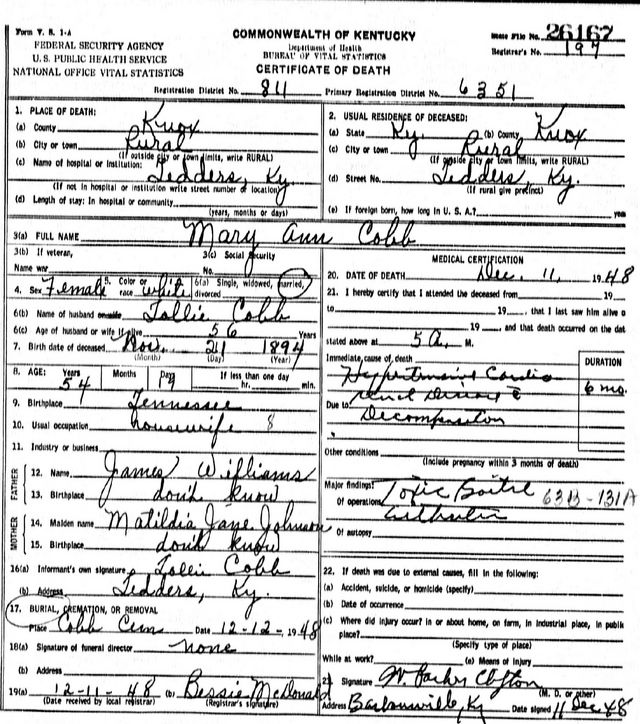 Form V. S. 1-A
COMMONWEALTH OF KENTUCKY
State File No. 26167
FEDERAL SECURITY AGENCY
Department of Health
Registrar's No. 197
U. S. PUBLIC HEALTH SERVICE
BUREAU OF VITAL STATISTICS
NATIONAL OFFICE VITAL STATISTICS
CERTIFICATE OF DEATH
Registration District No. 84 Primary Registration District No. 6351
1. PLACE OF DEATH:
(a) County Knox
(b) City or town Rural
(If outside city or town limits, write RURAL)
(c) Name of hospital or institution: Tedders, Ky.
(If not in hospital or institution write street number or location)
(d) Length of stay: In hospital or community
(years, months or days)
2. USUAL RESIDENCE OF DECEASED:
(a) State Ky. (b) County Knox
(c) City or town Rural
(If outside city or town limits, write RURAL)
(d) Street No. Tedders Ky.
(If rural give precinct)
(e) If foreign born, how long in U. S. A.? years
3(a) FULL NAME Mary Ann Cobb
3(b) If veteran,
Name war
3(c) Social Security
No.
4. Sex Female 5. Color or race white 6(a) Single, widowed, married, divorced
6(b) Name of husband Tollie Cobb
6(c) Age of husband or wife if alive 56 Years
7. Birth date of deceased Nov. 21 1894
(Month) (Day) (Year)
8. AGE: Years Months Days If less than one day
54 19 hr. min.
9. Birthplace Tennessee
10. Usual occupation housewife 8
11. Industry or business
FATHER
12. Name James Williams
13. Birthplace don't know
MOTHER
14. Maiden name Matildia Jane Johnson
15. Birthplace don't know
16(a) Informant's own signature Tollie Cobb
(b) Address Tedders, Ky.
17. BURIAL, CREMATION, OR REMOVAL
Place Cobb Cem Date 12-12-, 1948
18(a) Signature of funeral director none
(b) Address
19(a) 12-11-48 (b) Bessie McDonald
(Date received by local registrar) (Registrar's signature)
MEDICAL CERTIFICATION
20. DATE OF DEATH Dec. 11, 1948
21. I hereby certify that I attended the deceased from , 19
to 19 , that I last saw him alive o
19 and that death occurred on the dat
stated above at 5 a. M.
Immediate cause of death
DURATION
Hypertensive Cardio
6 mo.
renal Disease c
Due to Decompensation
Other conditions
(Include pregnancy within 3 months of death)
Major findings:
Of operations Toxic Goitre 63B-131A
Of autopsy
22. If death was due to external causes, fill in the following:
(a) Accident, suicide, or homicide (specify)
(b) Date of occurrence
(c) Where did injury occur? in or about home, on farm, in industrial place, in public
place?
(Specify type of place)
While at work? (e) Means of Injury
23. Signature W Parker Clifton
(M. D. or other)
Address Barbourville, Ky Date signed 11 Dec 48